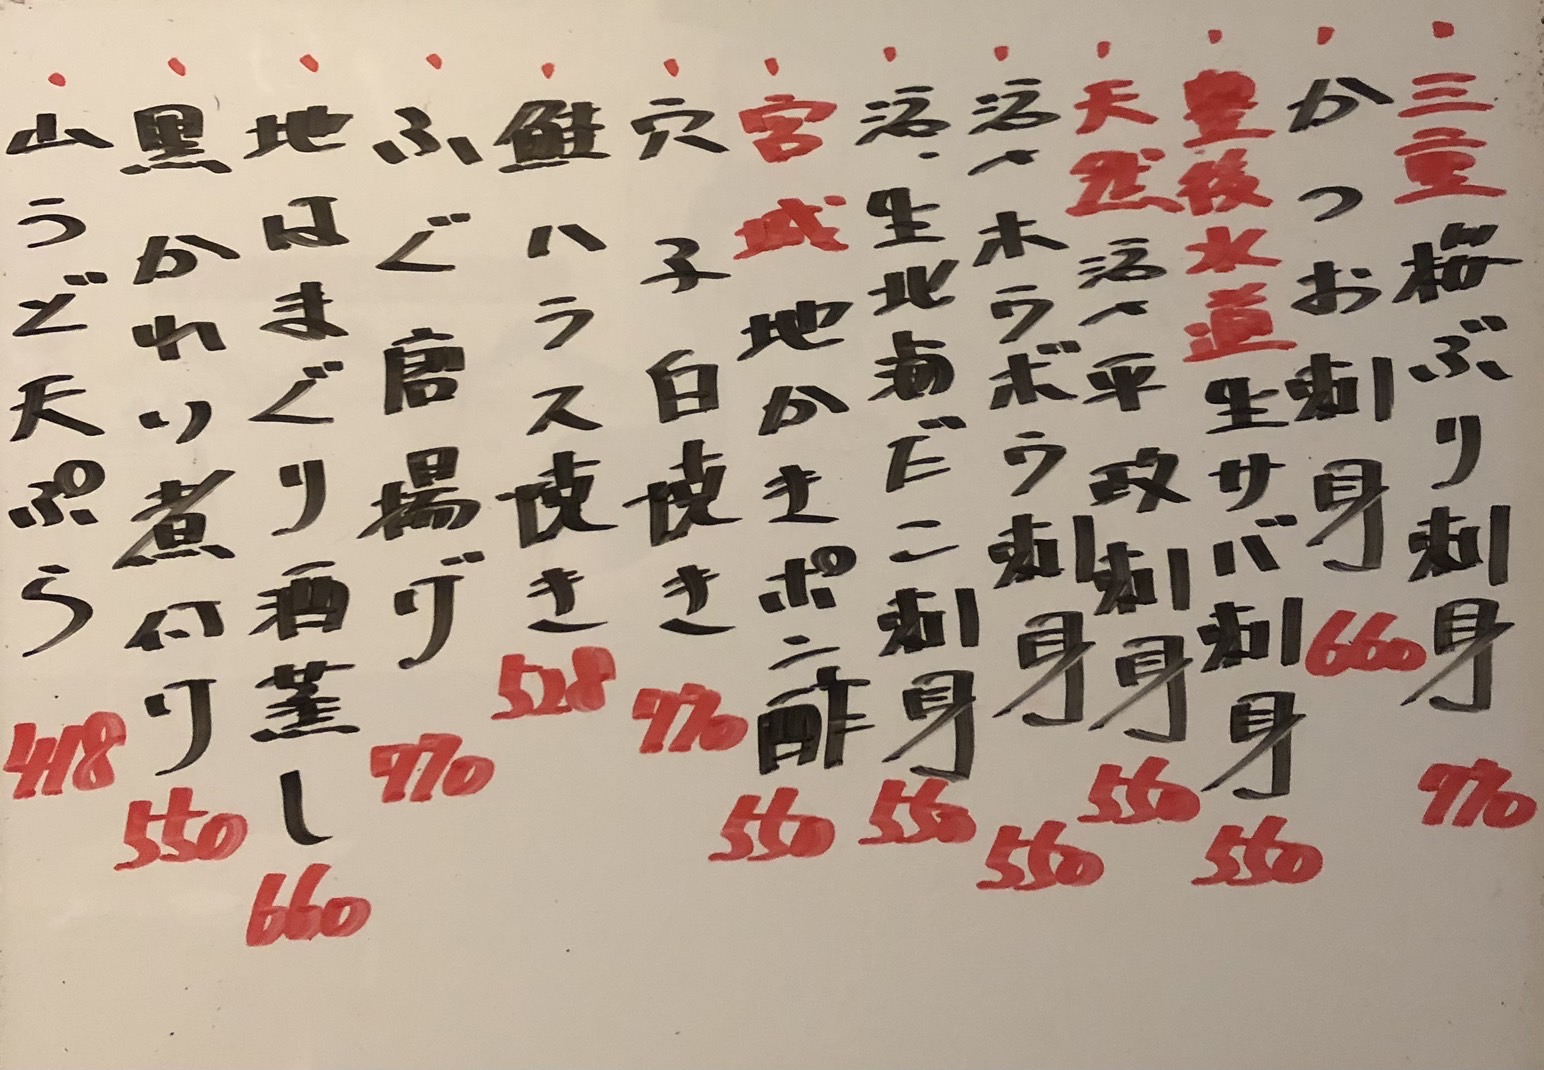 ・三重桜ぶり刺身 770
・かつお刺身 660
・豊後水道生サバ刺身 550
・天然活〆平政刺身 550
・活〆ホウボウ刺身 550
・活〆生北海だこ刺身 550
・宮城地かきポン酢 550
・穴子白焼き 770
・鮭ハラス焼き 528
・ふぐ唐揚げ 770
・地はまぐり酒蒸し 660
・黒かれい煮付け 550
・山うど天ぷら 418